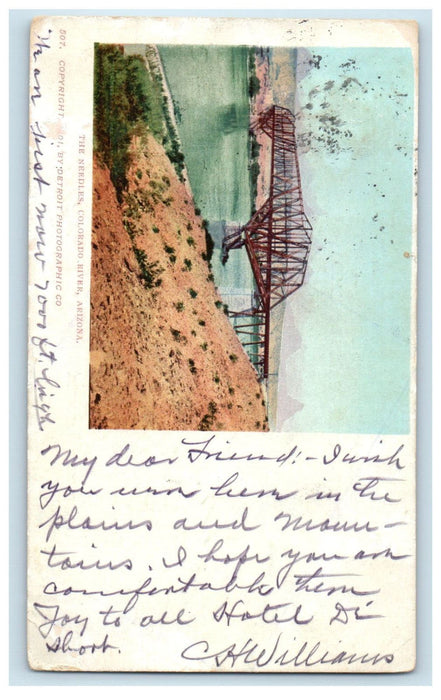 507. COPYRIGHT, 1901, BY DETROIT PHOTOGRAPHIC CO
THE NEEDLES, COLORADO RIVER, ARIZONA.
just now 7000 ft. high
My dear Friend! - I wish
you were here in the
plains and moun-
tains. I hope you are
comfortable there
Joy to all Hotel Di
short.
CH Williams